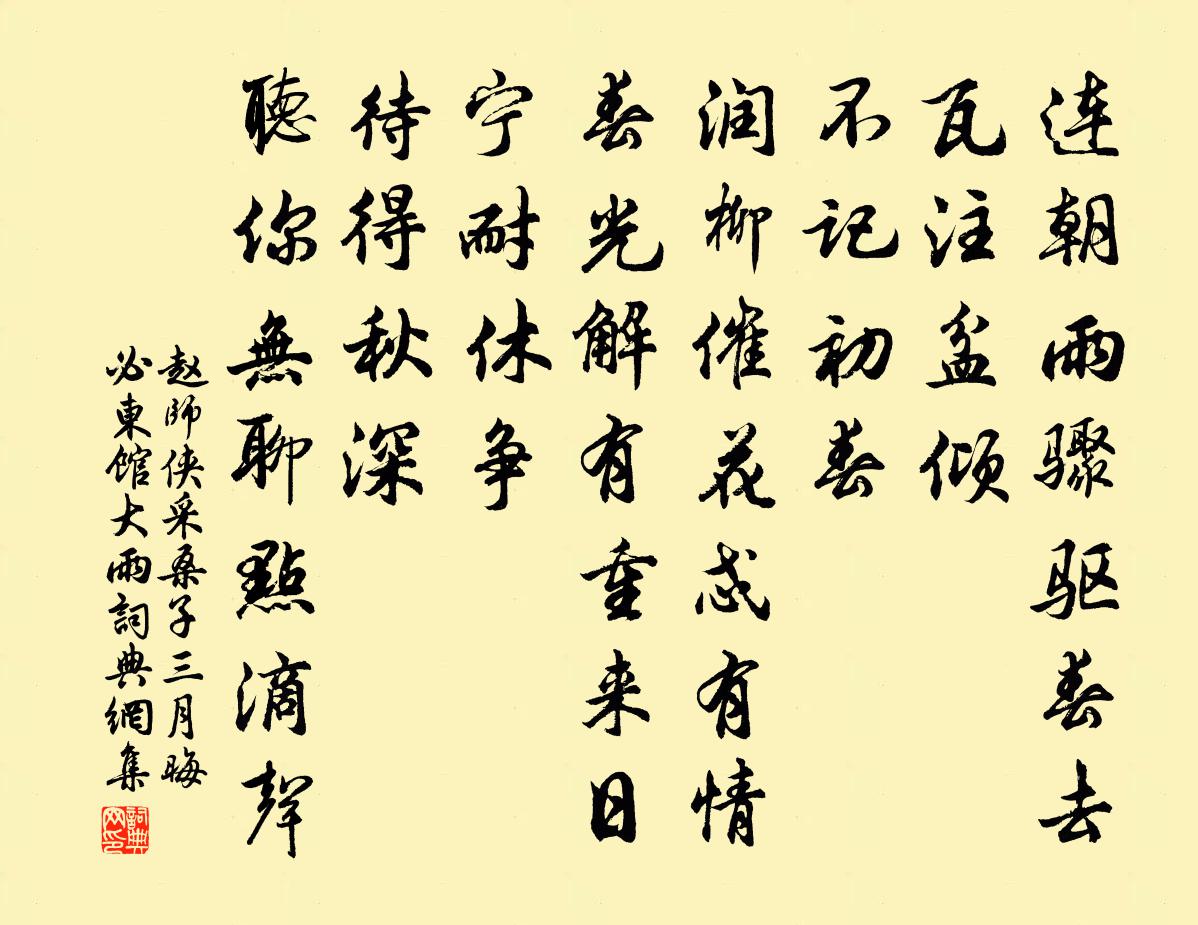 連朝雨驟驱春去
瓦注盆倾
不记初春
润柳催花忒有情
春光解有重来日
宁耐休争
待得秋深
聽你無聊點滴聲
赵師侠采桑子三月晦
必東馆大雨詞典網集
詞典
网印